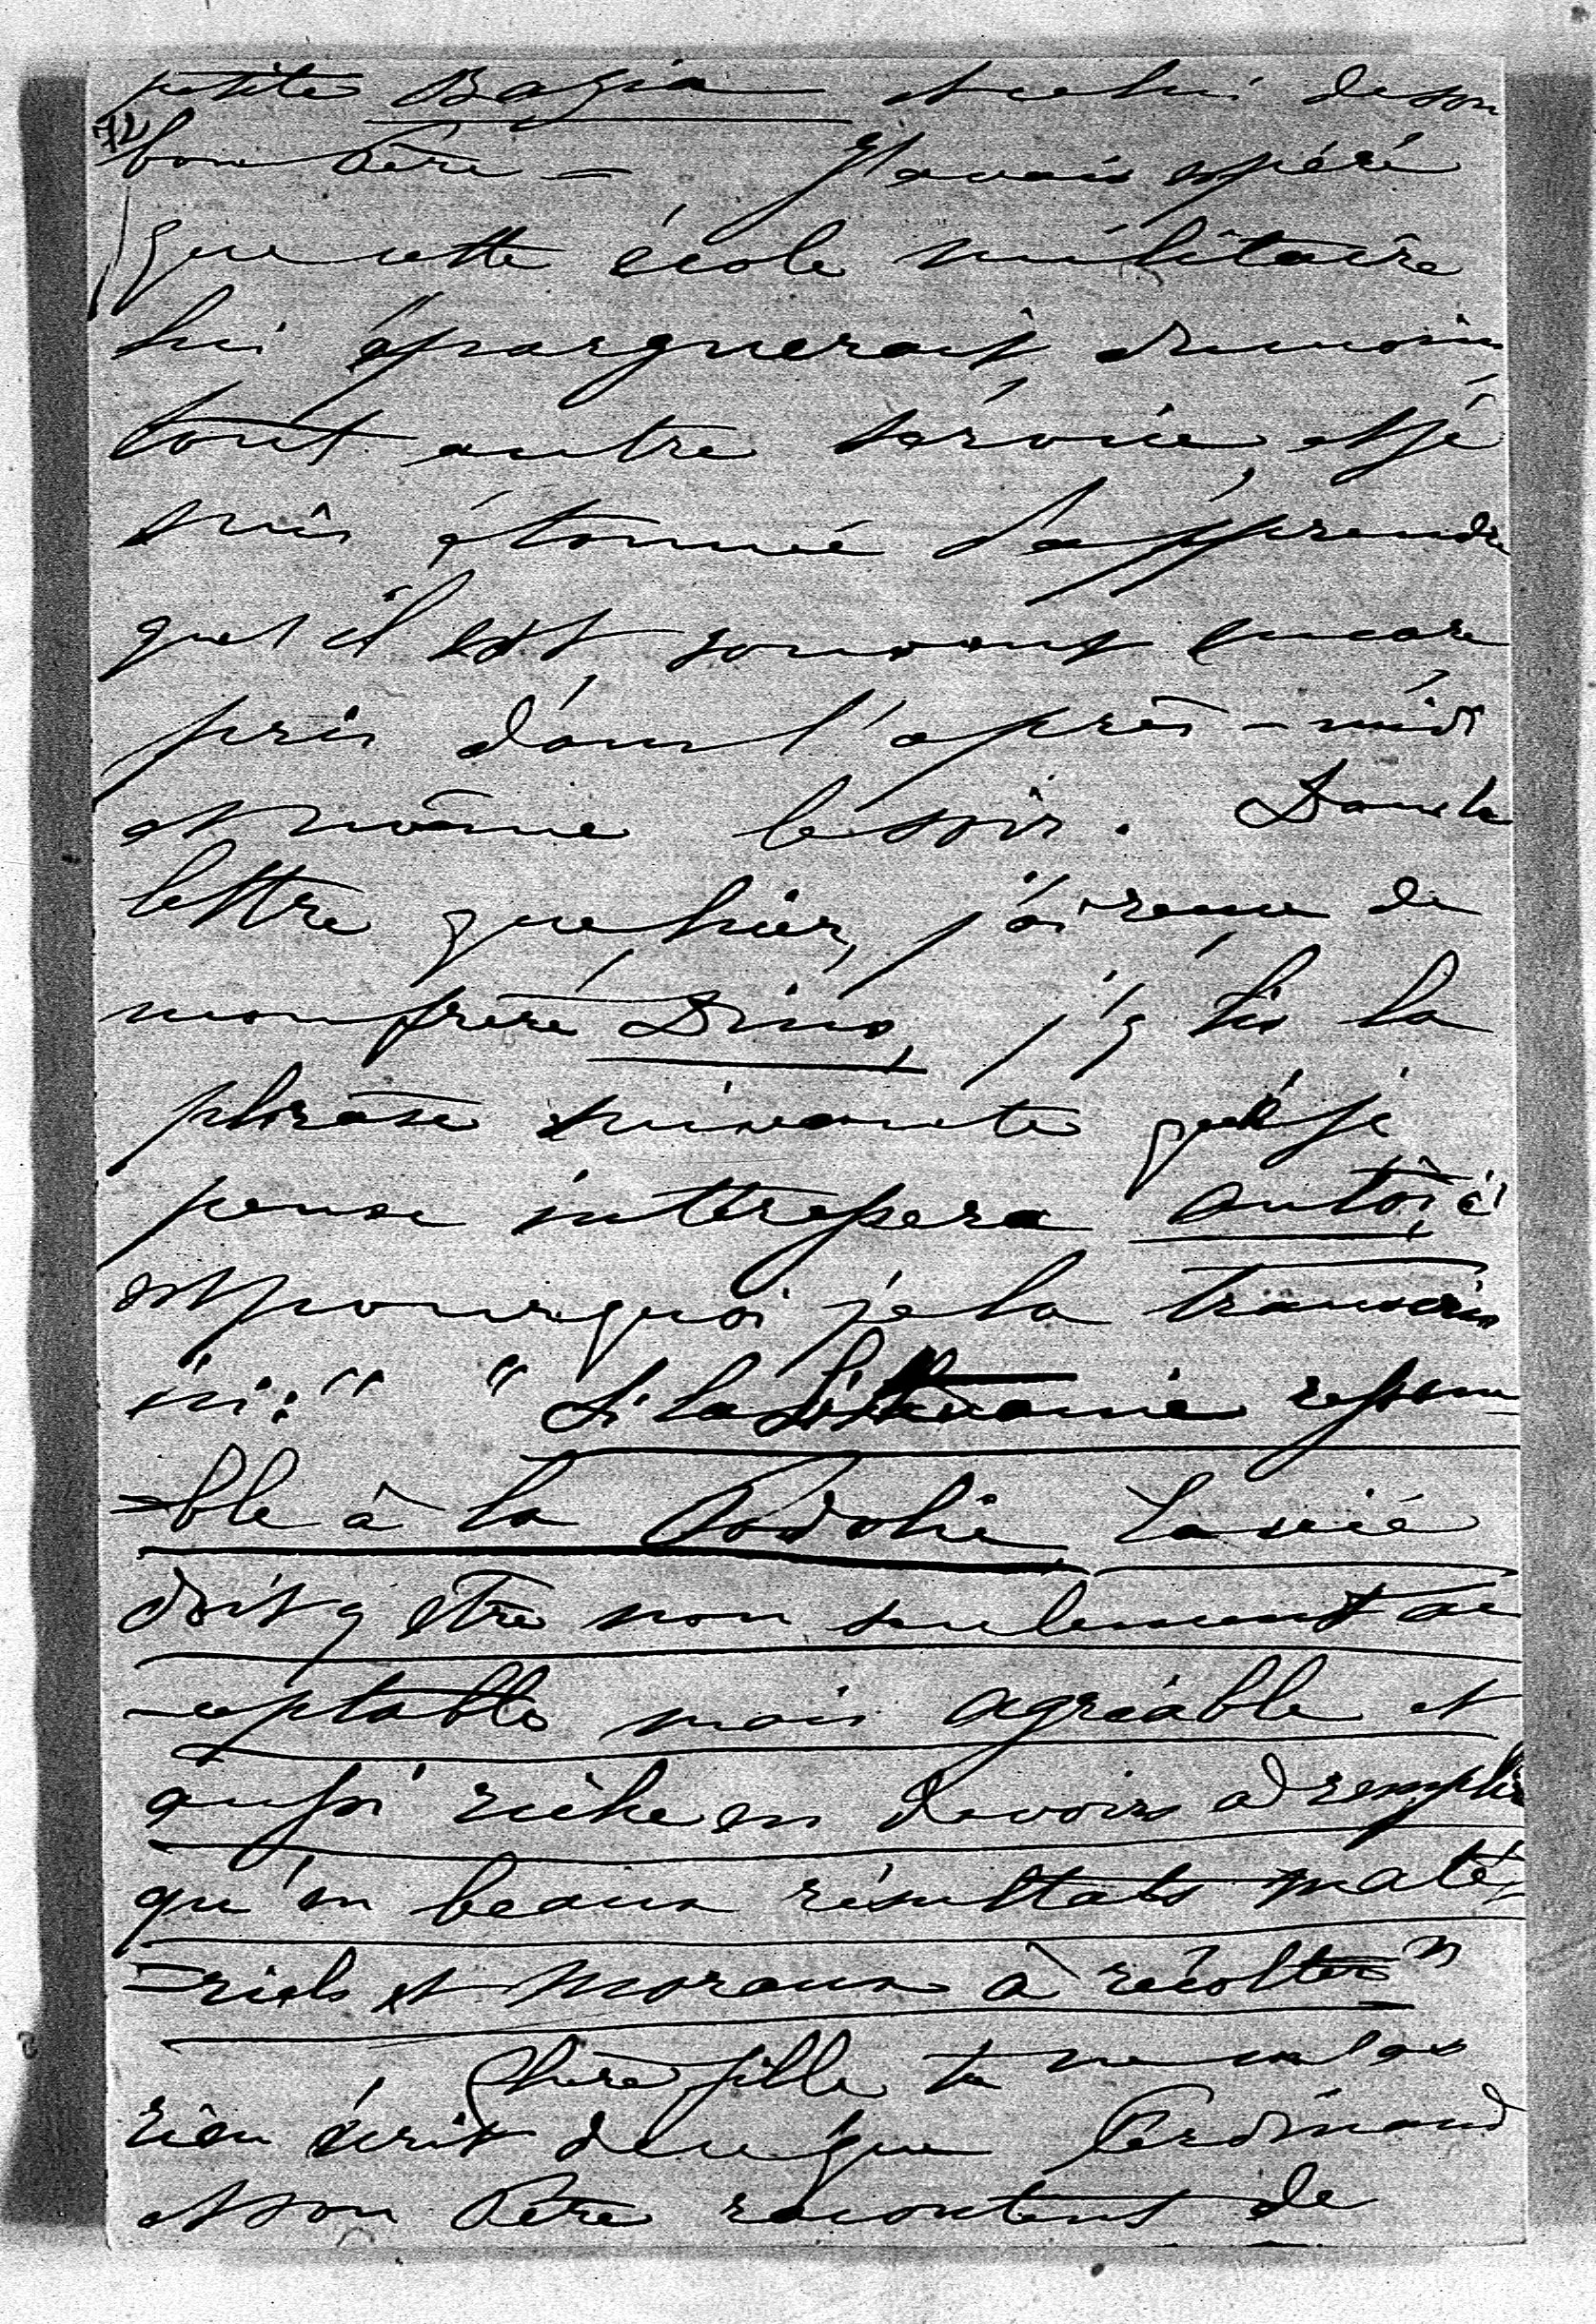 petite Bazia et celui de son
72
bon Père = J'avais espéré
que cette école militaire
lui épargnerait du moins
tout autre service, et je
suis étonné d'apprendre
qu'il est souvent encore
pris dans l'après-midi
et même le soir. Dans la
lettre que hier, j'ai reçue de
mon frère Dino, j'y lis la
phrase suivante que je
pense intéressera
est pourquoi je la transcris
ici: " "Si la Lithuanie ressem
=ble à la Podolie la vie
doit y être non seulement ac
-ceptable mais agréable et
aussi riche en devoirs à remplir
qu'en beaux résultats maté=
=riels et moraux à récolter"
Chère fille tu ne m'as
rien écrit de ce que Ferdinand
et son Père racontent de